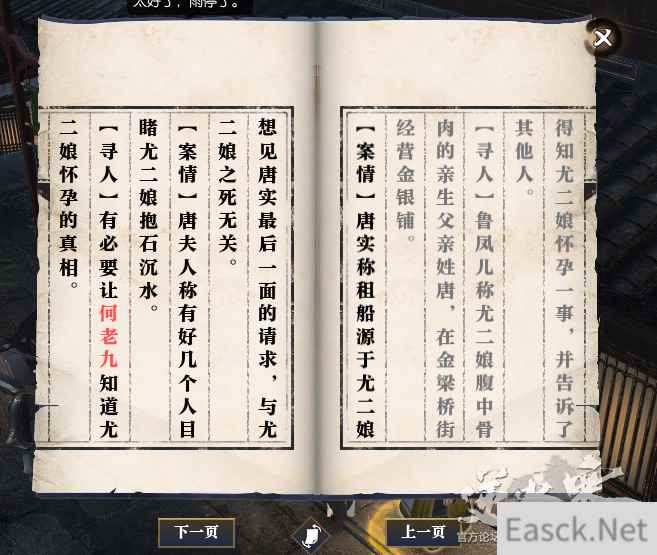 太好了，雨停了。
得知尤二娘怀孕一事，并告诉了
其他人。
【寻人】鲁凤儿称尤二娘腹中骨
肉的亲生父亲姓唐，在金梁桥街
经营金银铺。
【案情】唐实称租船源于尤二娘
想见唐实最后一面的请求，与尤
二娘之死无关。
【案情】唐夫人称有好几个人目
睹尤二娘抱石沉水。
【寻人】有必要让何老九知道尤
二娘怀孕的真相。
下一页
上一页
官方论坛
Easck.Net